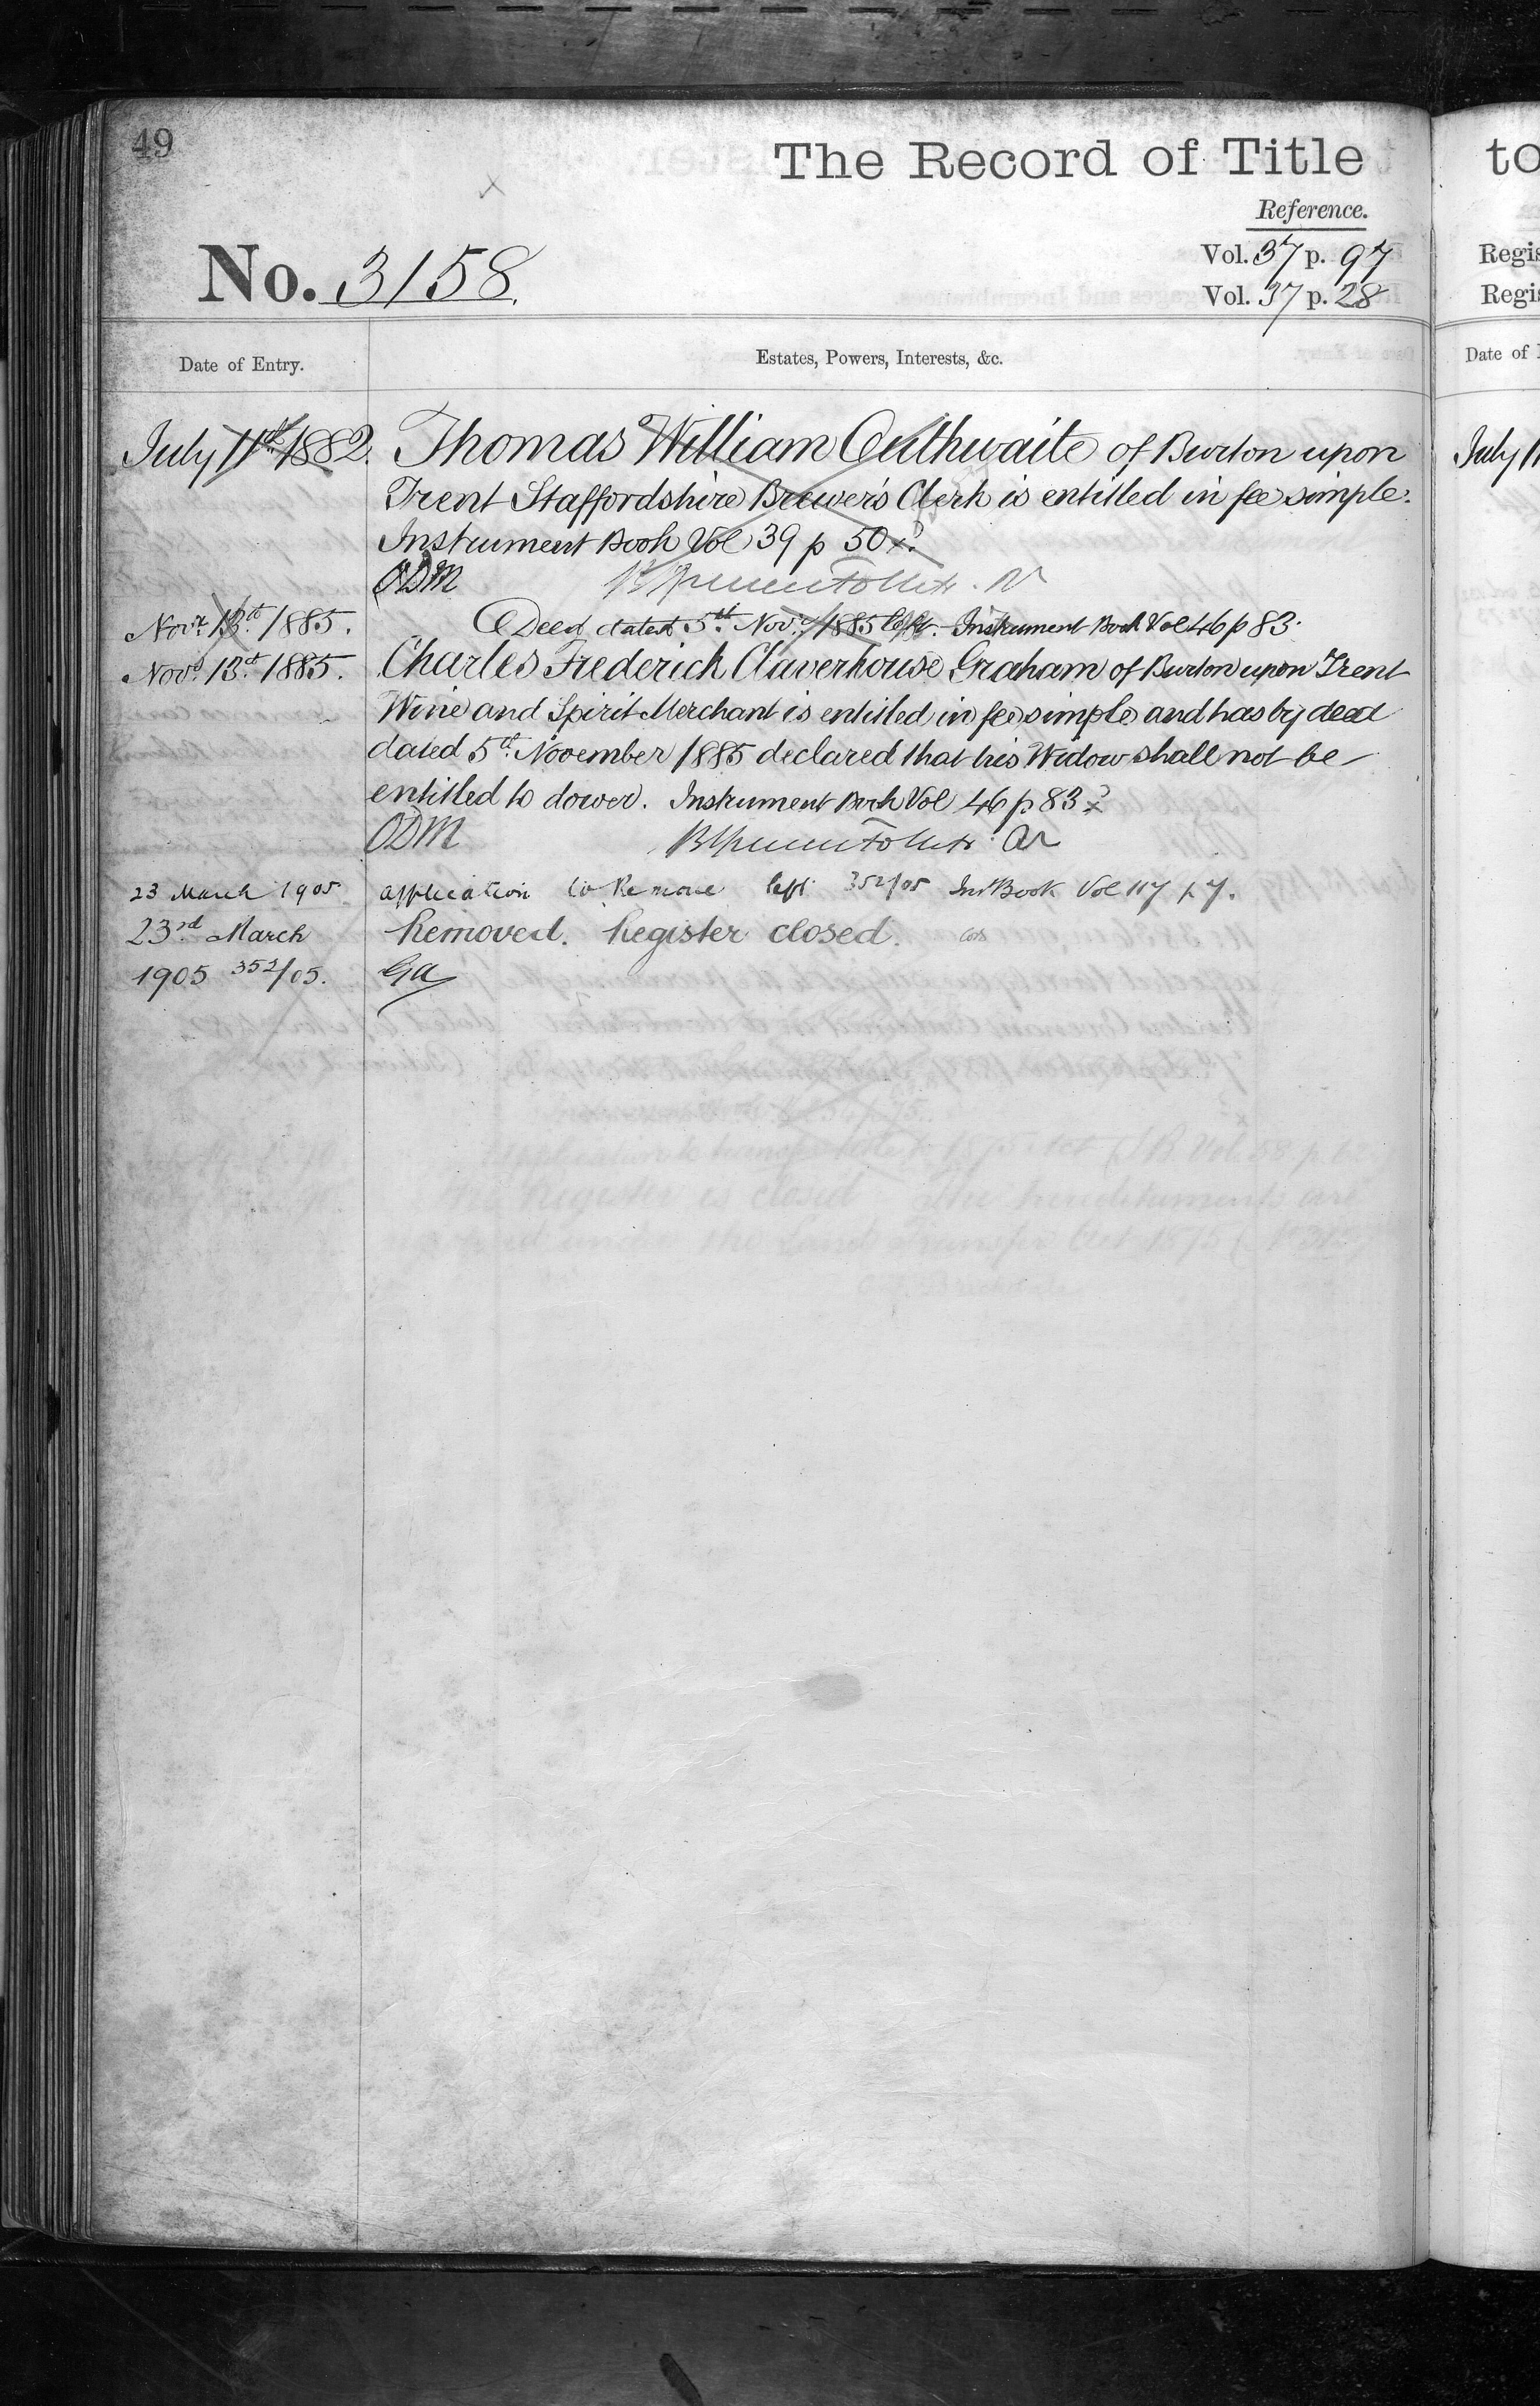 49
The Record of Title
to
Reference.
Vol. 37 p. 97
Regis
No. 3158.
Vol. 37 p. 28
Regi
Date of Entry.
Estates, Powers, Interests, &c.
Date of
July 11th 1882. Thomas William Outhwaite of Burton upon
July 11
Trent Staffordshire Brewer's Clerk is entitled in fee simple.
Instrument Book Vol 39 p 50
ODM
Novr. 13th 1885. Deed dated 5th Novr. 1885 left. Instrument Book Vol 46 p 83.
Novr. 13th 1885. Charles Frederick Claverhouse Graham of Burton upon Trent
Wine and Spirit Merchant is entitled in fee simple and has by deed
dated 5th November 1885 declared that his Widow shall not be
entitled to dower. Instrument Book Vol 46 p 83
ODM
23 March 1905 application to Remove left 352/05 Inst Book Vol 117 p 7.
23rd March Removed. Register closed.
1905 352/05. Ga